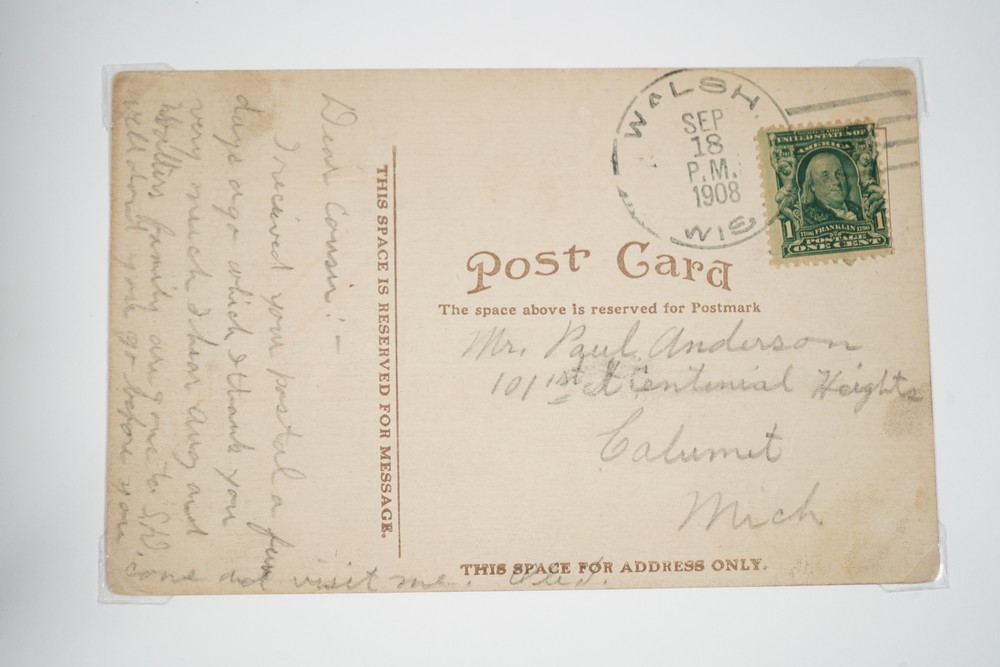 WALSH.
SEP
18
P.M.
1908
WIS
UNITED STATES OF
AMERICA
1706 FRANKLIN 1790
1 1
POSTAGE
ONE CENT
Post Card
The space above is reserved for Postmark
Mr. Paul Anderson
101 1st Centenial Heights
Calumet
Mich
THIS SPACE FOR ADDRESS ONLY.
THIS SPACE IS RESERVED FOR MESSAGE.
Dear Cousin! -
I received your postal a few
days ago which I thank you
very much I hear Aug and
family are gone to
before you
visit me.